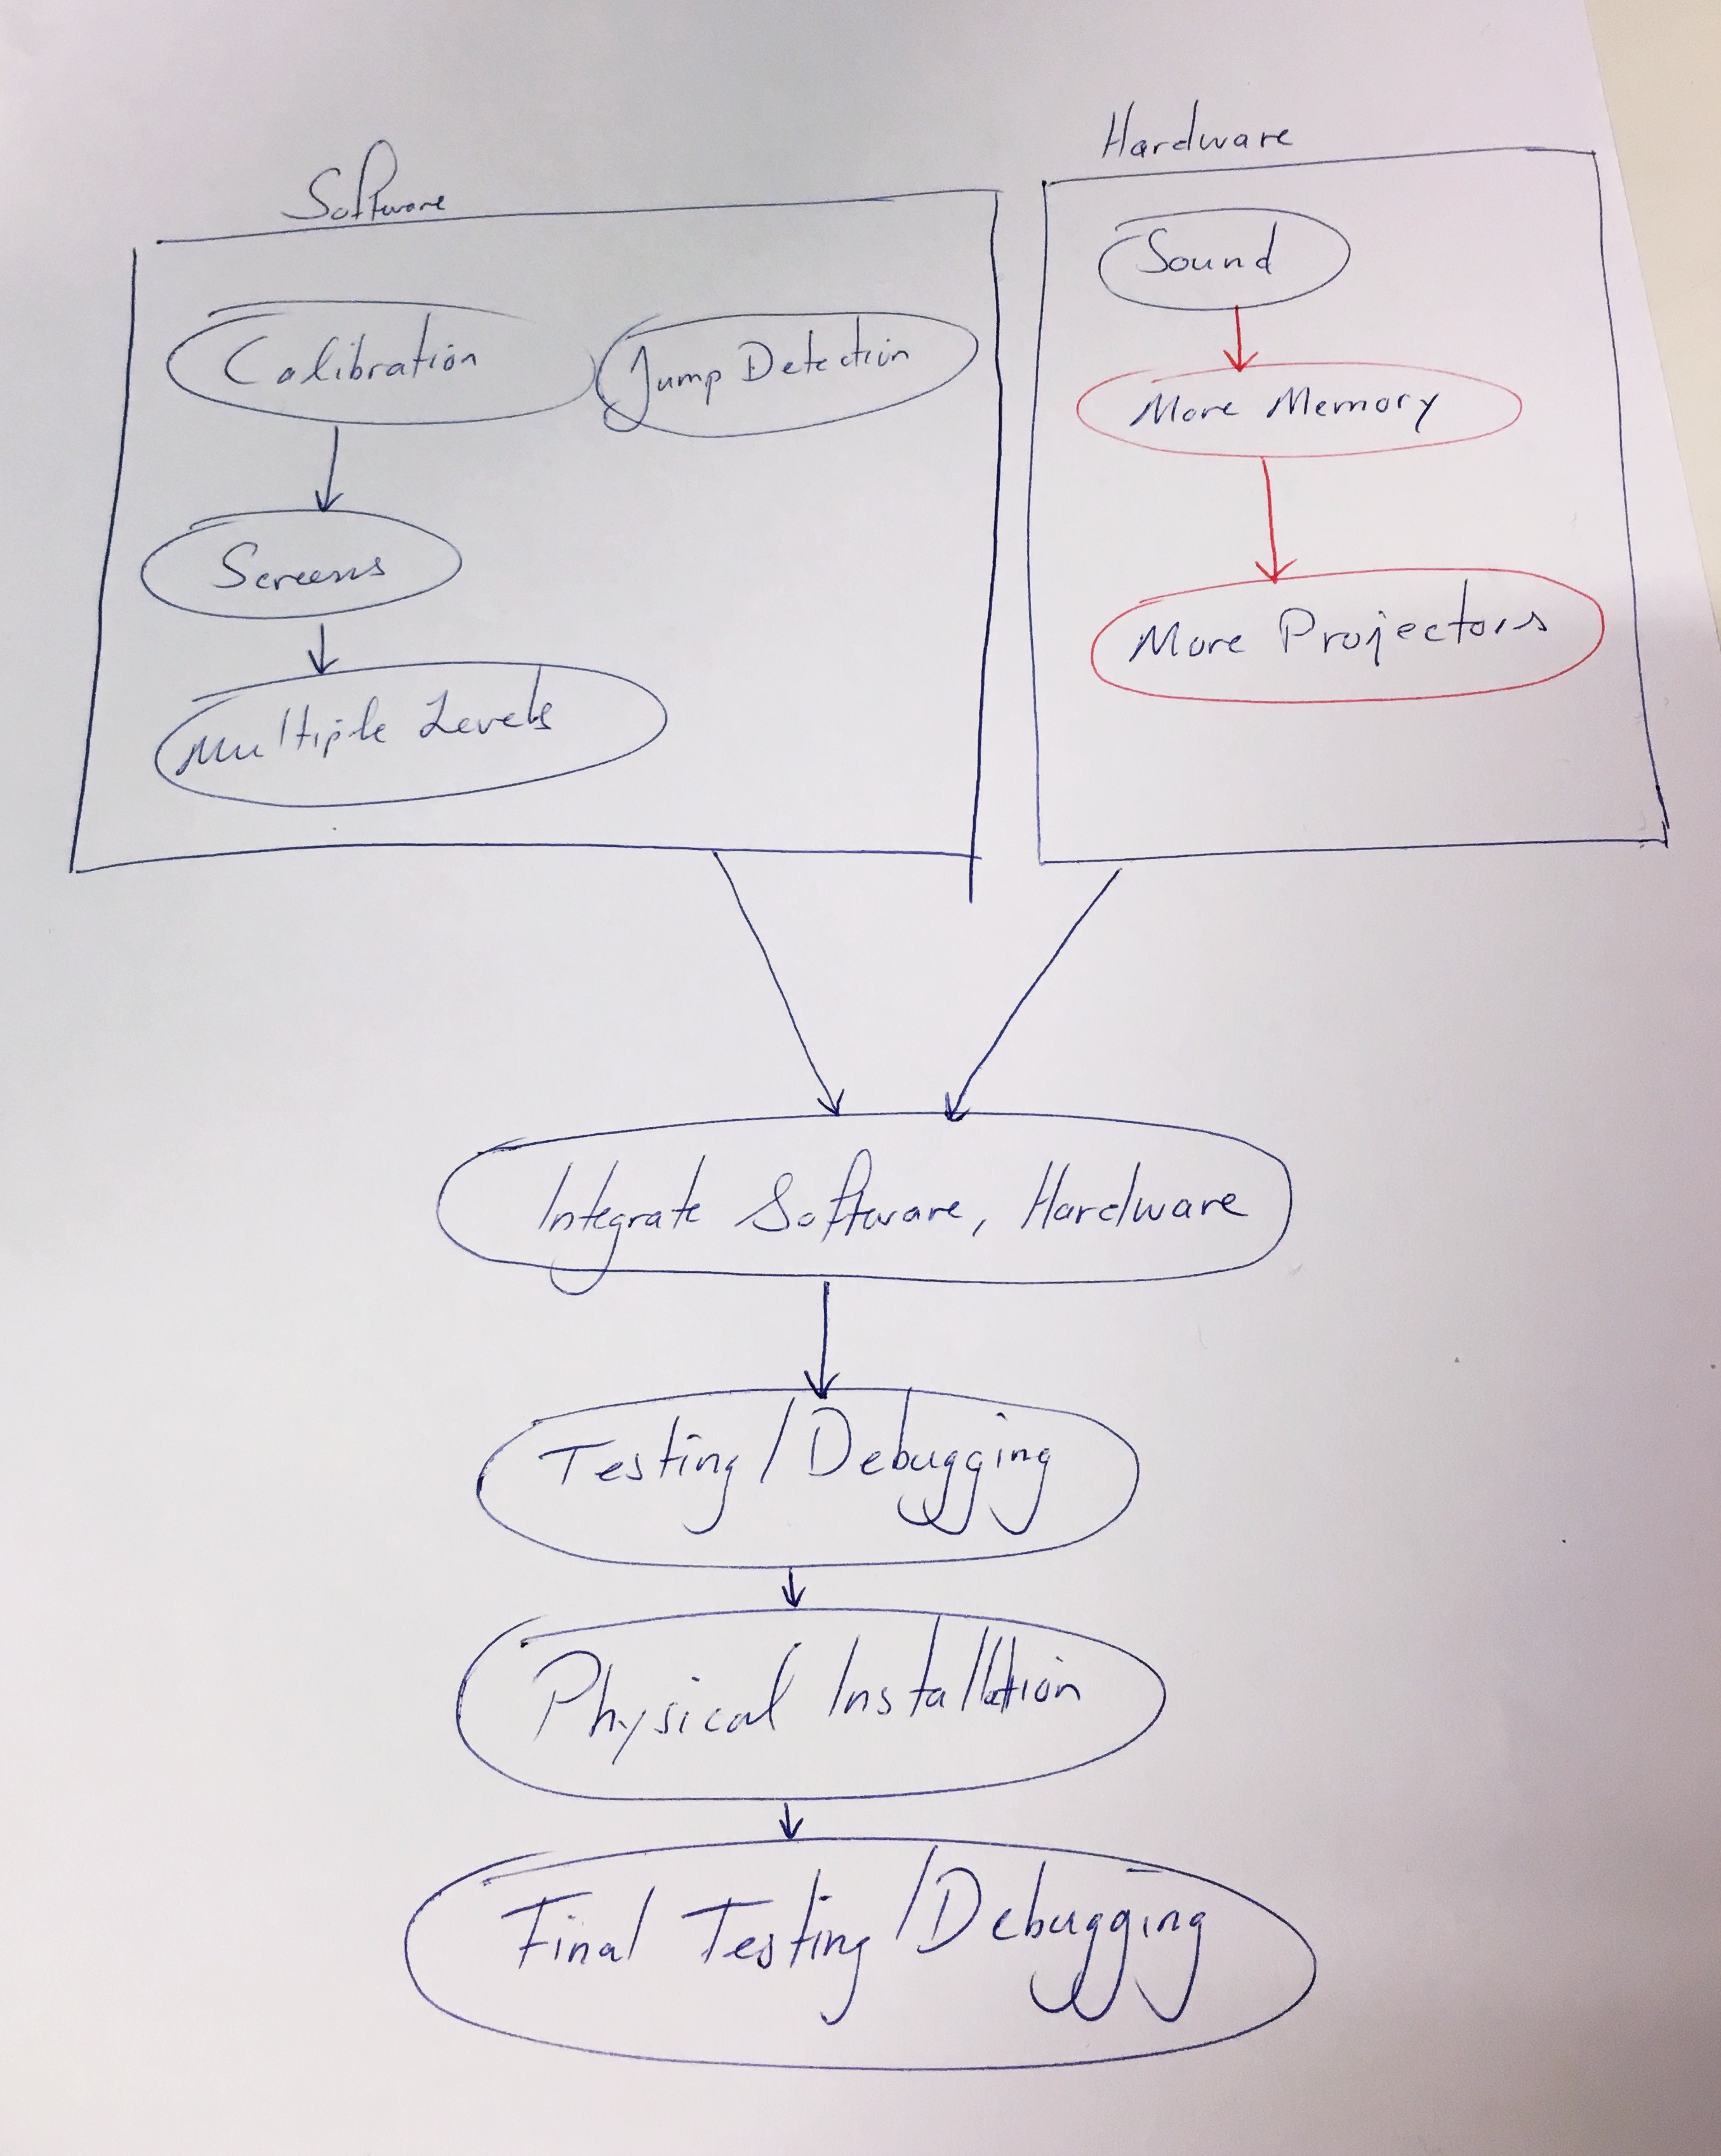 Software
Calibration
Jump Detection
Screens
Multiple Levels
Hardware
Sound
More Memory
More Projectors
Integrate Software, Hardware
Testing/Debugging
Physical Installation
Final Testing/Debugging